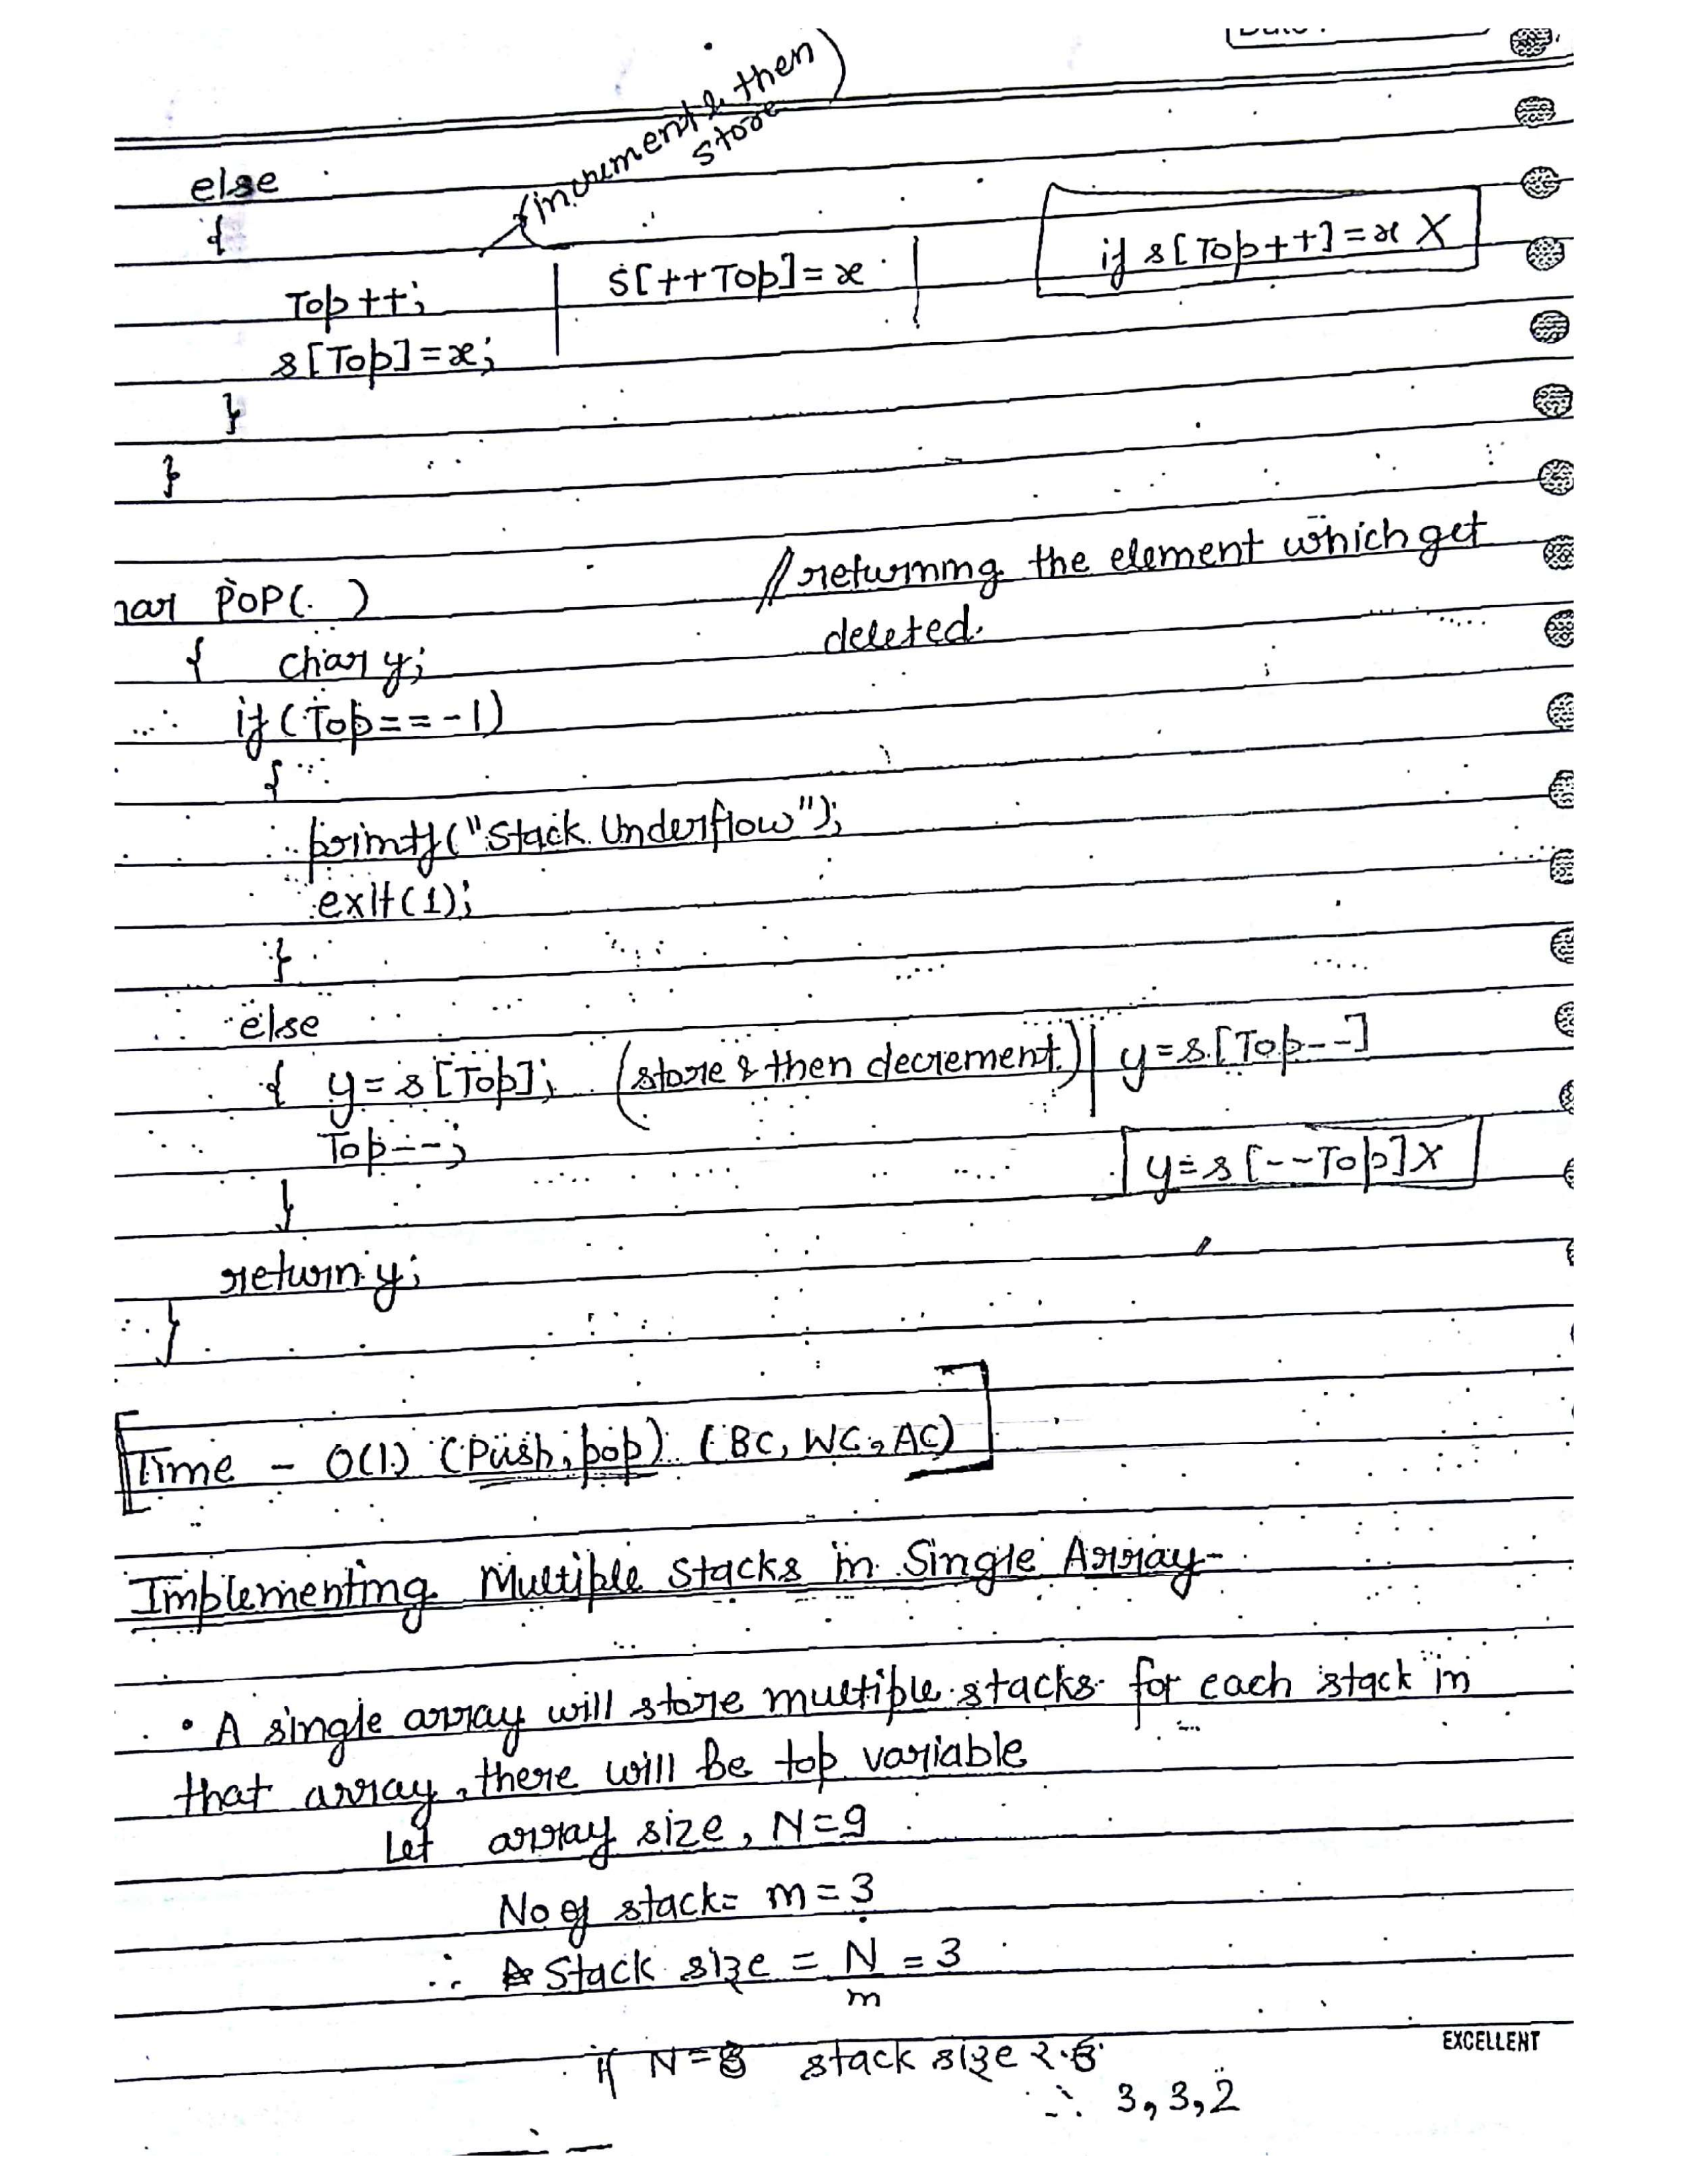 Date :
(increment & then
store)
else
{
Top++; | S[++Top]=x | if s[Top++]=x X
s[Top]=x;
}
}
har POP( ) //returning the element which get
deleted.
{ char y;
if(Top==-1)
{
printf("Stack Underflow");
exit(1);
}
else
{ y=s[Top]; (store & then decrement) | y=s[Top--]
Top--;
y=s[--Top]X
}
return y;
}
Time - O(1) (Push, pop) (BC, WC, AC)
Implementing Multiple Stacks in Single Array-
• A single array will store multiple stacks. for each stack in
that array, there will be top variable
Let array size, N=9
No of stack= m=3
∴ Stack size = N/m = 3
EXCELLENT
if N=8 stack size 2.6
∴ 3,3,2